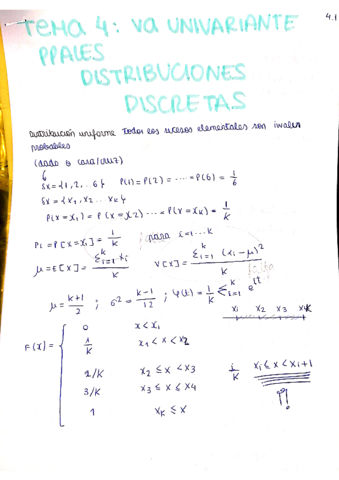 4.1
TEMA 4: VA UNIVARIANTE
PPALES
DISTRIBUCIONES
DISCRETAS
Distribución uniforme Todos los sucesos elementales son igual
probables
(dado o cara/cruz)
6
Sx = {1, 2, .. 6}  P(1) = P(2) = ---- = P(6) = 1/6
Sx = {x1, x2 .. xk}
P(X = x1) = P(X = x2) ---- = P(X = xk) = 1/k
Pi = P[X = xi] = 1/k  para i = 1 -- k
μ = E[X] = Σ^k_{i=1} xi / k  V[X] = Σ^k_{i=1} (xi - μ)² / k
μ = k+1/2 ; σ² = k-1/12 ; φ(t) = 1/k Σ^k_{i=1} e^{it}
x1 x2 x3 x4
F(x) =
0  x < x1
1/k  x1 < x < x2
2/k  x2 ≤ x < x3  i/k  xi ≤ x < xi+1
3/k  x3 ≤ x ≤ x4
1  xk ≤ x